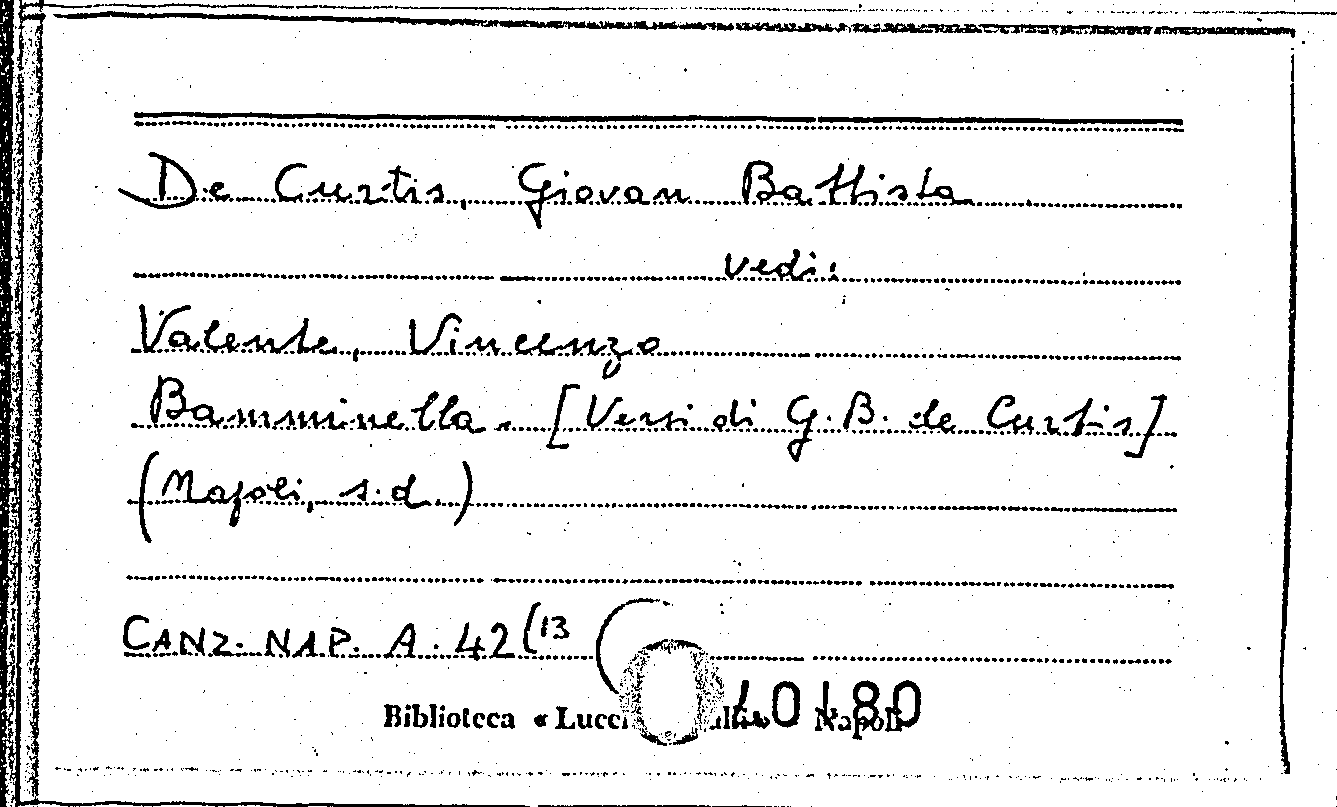 De Curtis, Giovan Battista
vedi:
Valente, Vincenzo
Bamminella. [Versi di G. B. de Curtis]
(Napoli, s.d.)
CANZ. NAP. A. 42(13
Biblioteca « Napoli